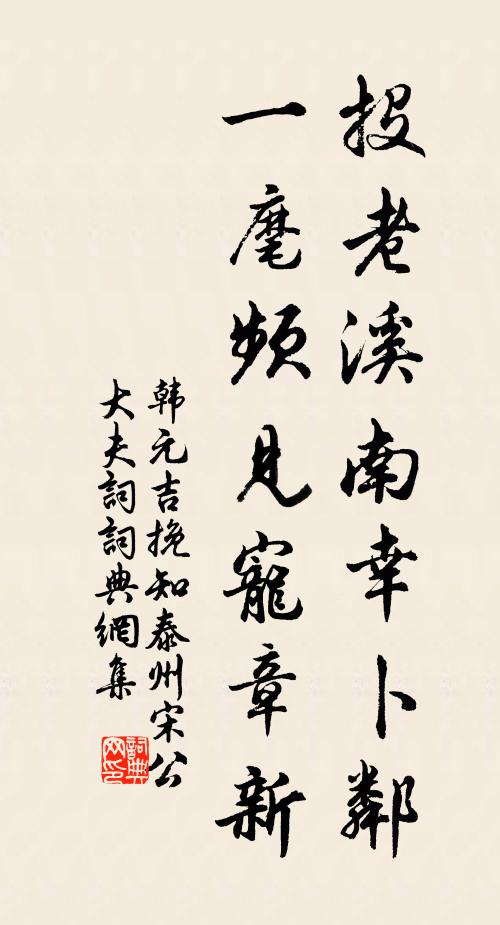 投老溪南幸卜鄰
一麾頻見寵章新
韩元吉挽知泰州宋公
大夫詞詞典網集
詞典
网印